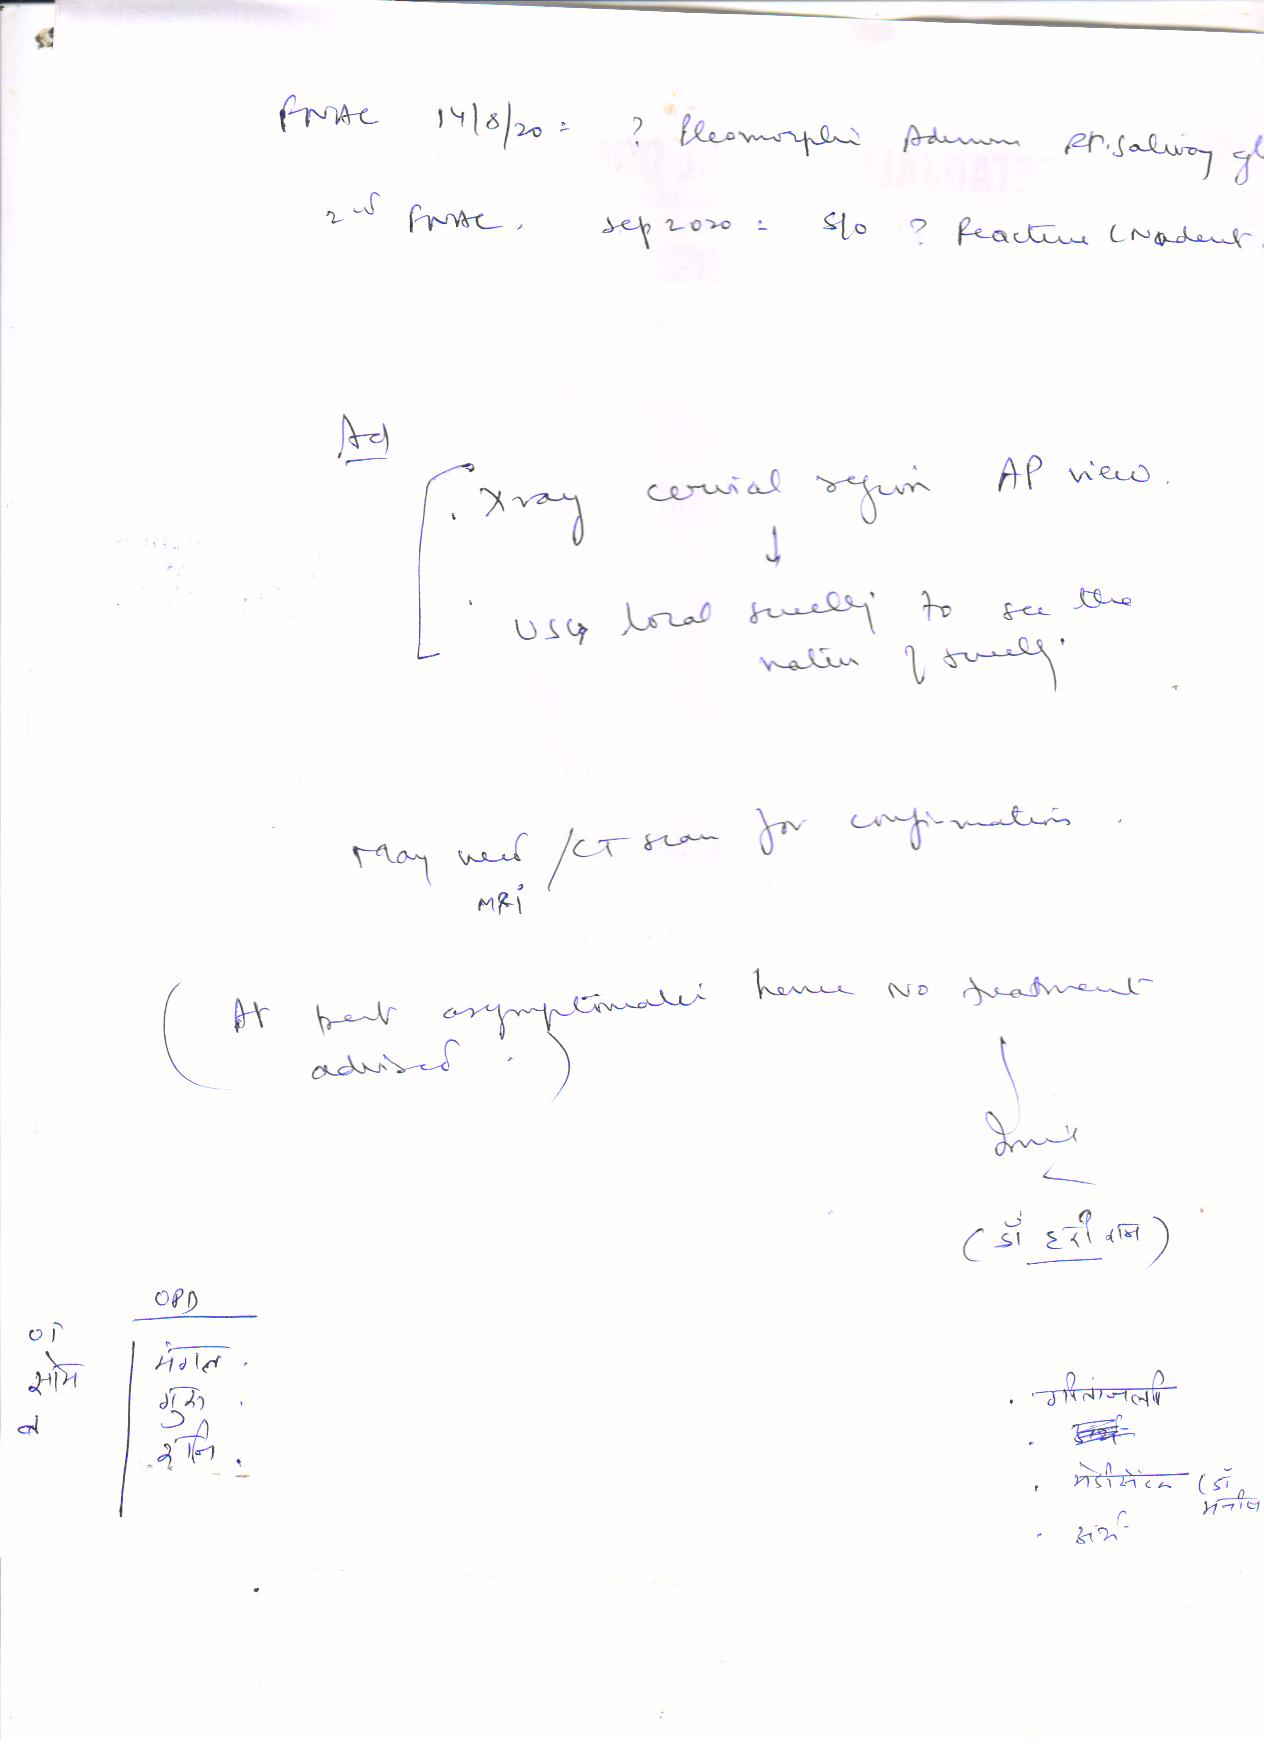 FNAC 14/8/20 = ? Pleomorphi Adenom Rt. Salivary gl
2nd FNAC. Sep 2020 = S/o ? Reactive LNadenit.
Ad
. Xray cervical region AP view.
↓
. USG local swellg to see the
nature of swellg.
May need /CT scan for confirmation.
MRI
(At pest asymptomatic hence NO treatment
advised.)
(डॉ हरी राम)
OPD
OT
सोम मंगल.
गुरु.
शनि.
. गीतांजली
. मेडीसेंटर (डॉ
मनीष
. अर्थ